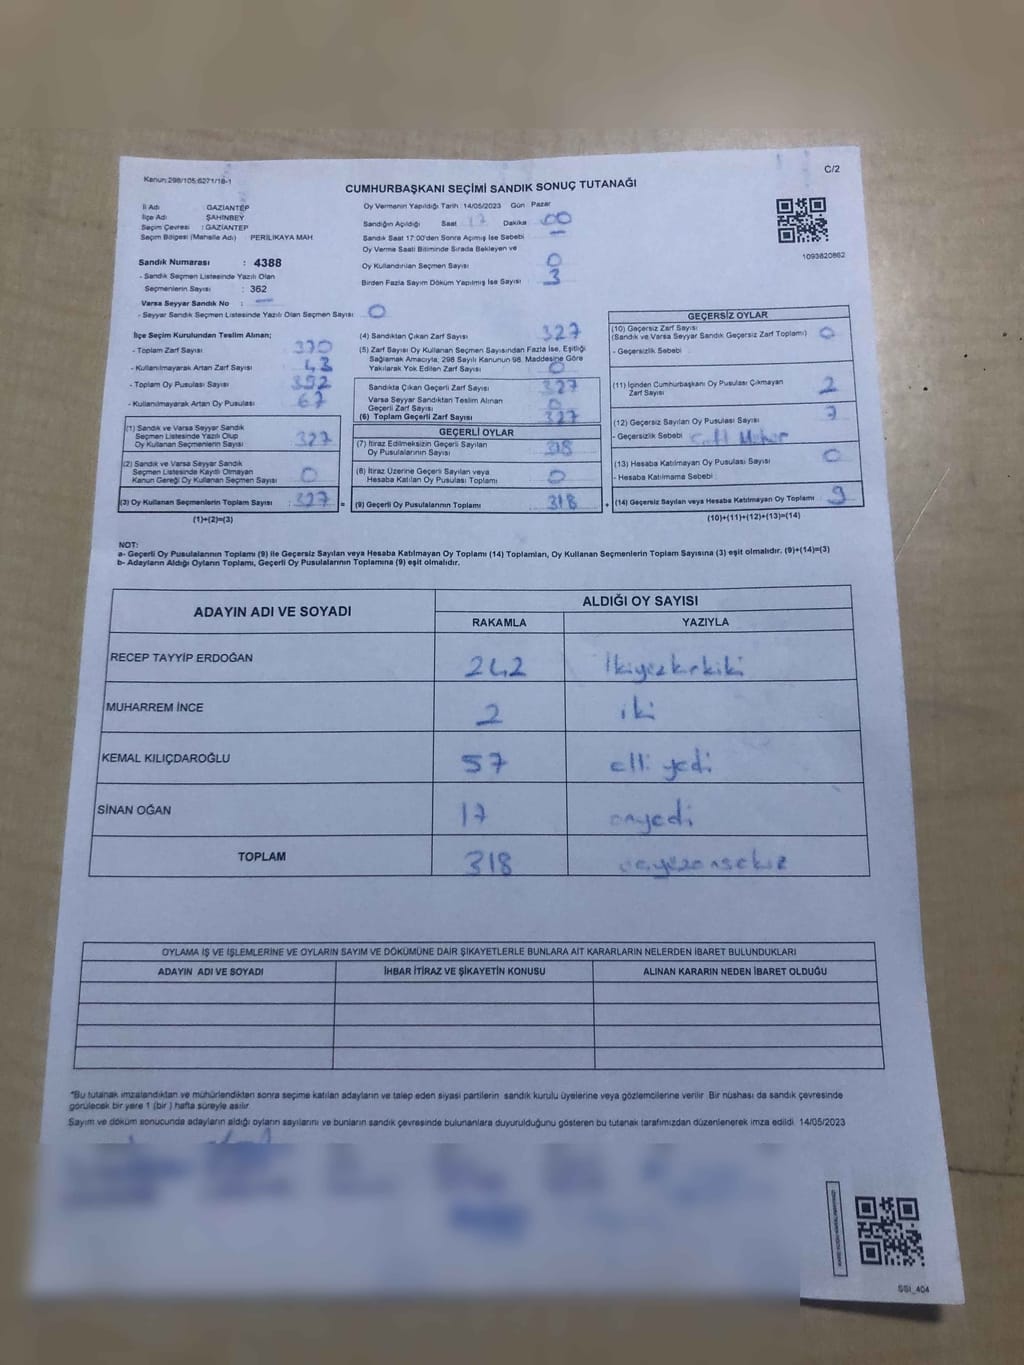 Kanun:298/105;6271/18-1
C/2
CUMHURBAŞKANI SEÇİMİ SANDIK SONUÇ TUTANAĞI
İl Adı GAZİANTEP
İlçe Adı ŞAHİNBEY
Seçim Çevresi : GAZİANTEP
Seçim Bölgesi (Mahalle Adı) PERİLİKAYA MAH
Sandık Numarası : 4388
- Sandık Seçmen Listesinde Yazılı Olan
Seçmenlerin Sayısı : 362
Varsa Seyyar Sandık No : —
- Seyyar Sandık Seçmen Listesinde Yazılı Olan Seçmen Sayısı 0
Oy Vermenin Yapıldığı Tarih :14/05/2023 Gün Pazar
Sandığın Açıldığı Saat 17 Dakika 00
Sandık Saat 17:00'den Sonra Açmış İse Sebebi —
Oy Verme Saati Bitiminde Sırada Bekleyen ve
Oy Kullandırılan Seçmen Sayısı 0
Birden Fazla Sayım Döküm Yapılmış İse Sayısı 3
1093820862
İlçe Seçim Kurulundan Teslim Alınan;
- Toplam Zarf Sayısı 370
- Kullanılmayarak Artan Zarf Sayısı 43
- Toplam Oy Pusulası Sayısı 392
- Kullanılmayarak Artan Oy Pusulası 67
(1) Sandık ve Varsa Seyyar Sandık
Seçmen Listesinde Yazılı Olup
Oy Kullanan Seçmenlerin Sayısı 327
(2) Sandık ve Varsa Seyyar Sandık
Seçmen Listesinde Kayıtlı Olmayan
Kanun Gereği Oy Kullanan Seçmen Sayısı 0
(3) Oy Kullanan Seçmenlerin Toplam Sayısı 327 =
(1)+(2)=(3)
(4) Sandıktan Çıkan Zarf Sayısı 327
(5) Zarf Sayısı Oy Kullanan Seçmen Sayısından Fazla İse, Eşitliği
Sağlamak Amacıyla, 298 Sayılı Kanunun 98. Maddesine Göre
Yakılarak Yok Edilen Zarf Sayısı 0
Sandıkta Çıkan Geçerli Zarf Sayısı 327
Varsa Seyyar Sandıktan Teslim Alınan
Geçerli Zarf Sayısı 0
(6) Toplam Geçerli Zarf Sayısı 327
GEÇERLİ OYLAR
(7) İtiraz Edilmeksizin Geçerli Sayılan
Oy Pusulalarının Sayısı 318
(8) İtiraz Üzerine Geçerli Sayılan veya
Hesaba Katılan Oy Pusulası Toplamı 0
(9) Geçerli Oy Pusulalarının Toplamı 318 +
GEÇERSİZ OYLAR
(10) Geçersiz Zarf Sayısı
(Sandık ve Varsa Seyyar Sandık Geçersiz Zarf Toplamı) 0
- Geçersizlik Sebebi
(11) İçinden Cumhurbaşkanı Oy Pusulası Çıkmayan
Zarf Sayısı 2
(12) Geçersiz Sayılan Oy Pusulası Sayısı 7
- Geçersizlik Sebebi
(13) Hesaba Katılmayan Oy Pusulası Sayısı 0
- Hesaba Katılmama Sebebi
(14) Geçersiz Sayılan veya Hesaba Katılmayan Oy Toplamı 9
(10)+(11)+(12)+(13)=(14)
NOT:
a- Geçerli Oy Pusulalarının Toplamı (9) ile Geçersiz Sayılan veya Hesaba Katılmayan Oy Toplamı (14) Toplamları, Oy Kullanan Seçmenlerin Toplam Sayısına (3) eşit olmalıdır. (9)+(14)=(3)
b- Adayların Aldığı Oyların Toplamı, Geçerli Oy Pusulalarının Toplamına (9) eşit olmalıdır.
ADAYIN ADI VE SOYADI
ALDIĞI OY SAYISI
RAKAMLA YAZIYLA
RECEP TAYYİP ERDOĞAN 242 İkiyüzkırkiki
MUHARREM İNCE 2 iki
KEMAL KILIÇDAROĞLU 57 elli yedi
SİNAN OĞAN 17 onyedi
TOPLAM 318 üçyüzonsekiz
OYLAMA İŞ VE İŞLEMLERİNE VE OYLARIN SAYIM VE DÖKÜMÜNE DAİR ŞİKAYETLERLE BUNLARA AİT KARARLARIN NELERDEN İBARET BULUNDUKLARI
ADAYIN ADI VE SOYADI İHBAR İTİRAZ VE ŞİKAYETİN KONUSU ALINAN KARARIN NEDEN İBARET OLDUĞU
*Bu tutanak imzalandıktan ve mühürlendikten sonra seçime katılan adayların ve talep eden siyasi partilerin sandık kurulu üyelerine veya gözlemcilerine verilir. Bir nüshası da sandık çevresinde
görülecek bir yere 1 (bir) hafta süreyle asılır.
Sayım ve döküm sonucunda adayların aldığı oyların sayılarını ve bunların sandık çevresinde bulunanlara duyurulduğunu gösteren bu tutanak tarafımızdan düzenlenerek imza edildi. 14/05/2023
SSI_404